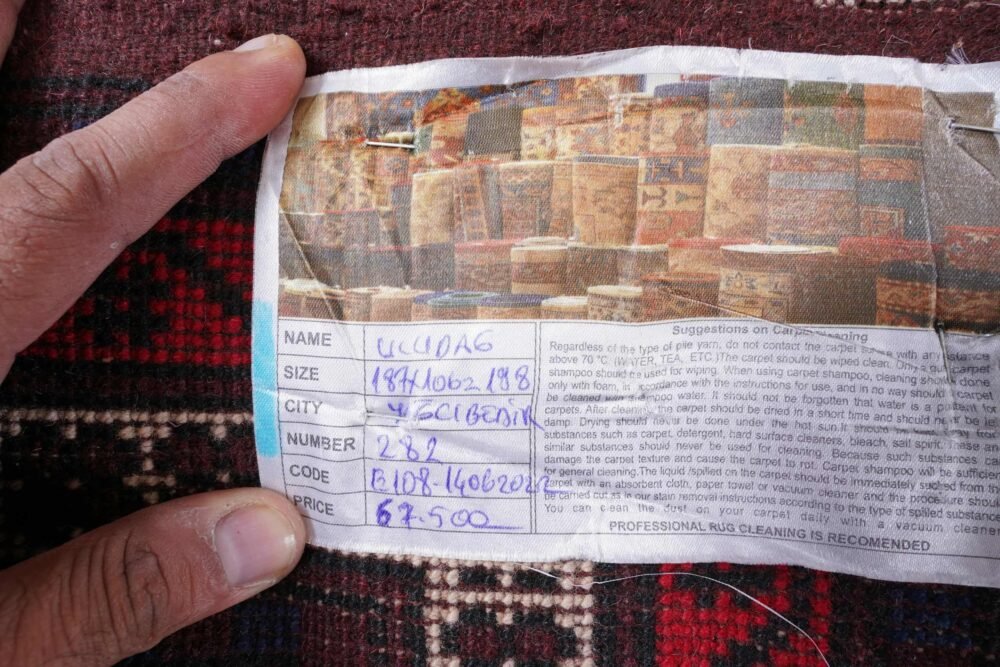 NAME ULUDAG
SIZE 187X106=198
CITY YAGCIBEDIR
NUMBER 282
CODE B108-14062022
PRICE 67.500
Suggestions on Carpet Cleaning
Regardless of the type of pile yarn, do not contact the carpet with any substance
above 70 °C (WATER, TEA, ETC.)The carpet should be wiped clean. Only a carpet
shampoo should be used for wiping. When using carpet shampoo, cleaning should done
only with foam, in accordance with the instructions for use, and in no way should carpet
be cleaned with shampoo water. It should not be forgotten that water is a for
carpets. After cleaning, the carpet should be dried in a short time and should never be left
damp. Drying should never be done under the hot sun.It should be from
substances such as carpet, detergent, hard surface cleaners, bleach, salt spirit. These and
similar substances should never be used for cleaning. Because such substances can
damage the carpet texture and cause the carpet to rot. Carpet shampoo will be sufficient
for general cleaning.The liquid /spilled on the carpet should be immediately sucked from the
carpet with an absorbent cloth, paper towel or vacuum cleaner and the procedure should
be carried out as in our stain removal instructions according to the type of spilled substance
You can clean the dust on your carpet daily with a vacuum cleaner
PROFESSIONAL RUG CLEANING IS RECOMENDED